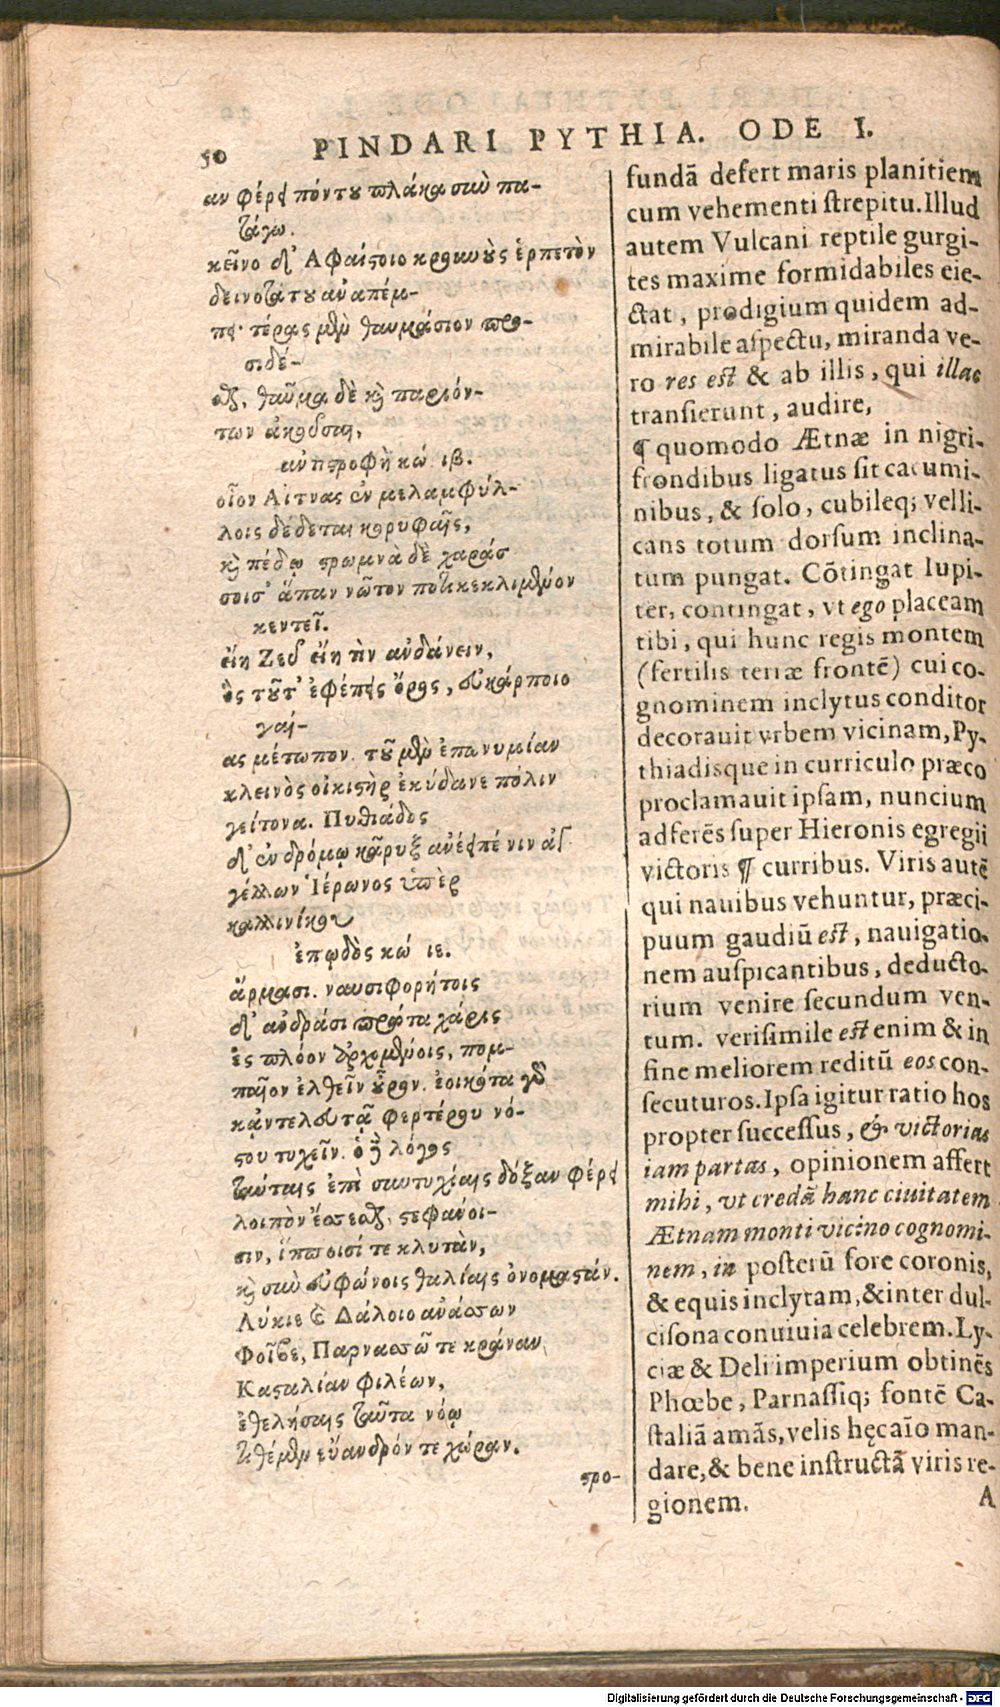 50 PINDARI PYTHIA. ODE I.
αν φέρει πόντου πλάκα σὺν πα-
τάγῳ.
κεῖνο δ' Ἁφαίστοιο κρουνοὺς ἑρπετὸν
δεινοτάτου ἀναπέμ-
πει· τέρας μὲν θαυμάσιον προ-
σιδέ-
σθαι, θαῦμα δὲ καὶ παριόν-
των ἀκοῦσαι,
ἀντιστροφὴ κώ. ιβ.
οἷον Αἴτνας ἐν μελαμφύλ-
λοις δέδεται κορυφαῖς,
καὶ πέδῳ στρωμνὰ δὲ χαράσ
σοισ' ἅπαν νῶτον ποτικεκλιμένον
κεντεῖ.
εἴη Ζεῦ εἴη τὶν ἁνδάνειν,
ὃς τοῦτ' ἐφέπεις ὄρος, εὐκάρποιο
γαί-
ας μέτωπον. τοῦ μὲν ἐπωνυμίαν
κλεινὸς οἰκιστὴρ ἐκύδανε πόλιν
γείτονα. Πυθιάδος
δ' ἐν δρόμῳ κάρυξ ἀνέειπέ νιν ἀγ
γέλλων Ἱέρωνος ὑπὲρ
καλλινίκου
ἐπῳδὸς κώ. ιε.
ἅρμασι. ναυσιφορήτοις
δ' ἀνδράσι πρώτα χάρις
ἐς πλόον ἀρχομένοις, πομ-
παῖον ἐλθεῖν οὖρον. ἐοικότα γὰρ
κἀν τελευτᾷ φερτέρου νό-
στου τυχεῖν. ὁ δὲ λόγος
ταύταις ἐπὶ συντυχίαις δόξαν φέρει
λοιπὸν ἔσσεσθαι, στεφάνοι-
σιν, ἵπποισί τε κλυτὰν,
καὶ σὺν εὐφώνοις θαλίαις ὀνομαστάν.
Λύκιε καὶ Δάλοιο ἀνάσσων
Φοῖβε, Παρνασσῶ τε κράναν
Κασταλίαν φιλέων,
ἐθελήσαις ταῦτα νόῳ
τιθέμεν εὔανδρόν τε χώραν.
στρο-
fundã defert maris planitiem
cum vehementi strepitu. Illud
autem Vulcani reptile gurgi-
tes maxime formidabiles eie-
ctat, prodigium quidem ad-
mirabile aspectu, miranda ve-
ro res est & ab illis, qui illac
transierunt, audire,
¶ quomodo Ætnæ in nigri-
frondibus ligatus sit cacumi-
nibus, & solo, cubileq; velli-
cans totum dorsum inclina-
tum pungat. Cõtingat Iupi-
ter, contingat, vt ego placeam
tibi, qui hunc regis montem
(fertilis terræ frontẽ) cui co-
gnominem inclytus conditor
decorauit vrbem vicinam, Py-
thiadisque in curriculo præco
proclamauit ipsam, nuncium
adferẽs super Hieronis egregii
victoris ¶ curribus. Viris autẽ
qui nauibus vehuntur, præci-
puum gaudiũ est, nauigatio-
nem auspicantibus, deducto-
rium venire secundum ven-
tum. verisimile est enim & in
fine meliorem reditũ eos con-
secuturos. Ipsa igitur ratio hos
propter successus, & victorias
iam partas, opinionem affert
mihi, vt credã hanc ciuitatem
Ætnam monti vicino cognomi-
nem, in posterũ fore coronis,
& equis inclytam, & inter dul-
cisona conuiuia celebrem. Ly-
ciæ & Deli imperium obtinẽs
Phœbe, Parnassiq; fontẽ Ca-
staliã amãs, velis hęc aĩo man-
dare, & bene instructã viris re-
gionem.
A
Digitalisierung gefördert durch die Deutsche Forschungsgemeinschaft - DFG